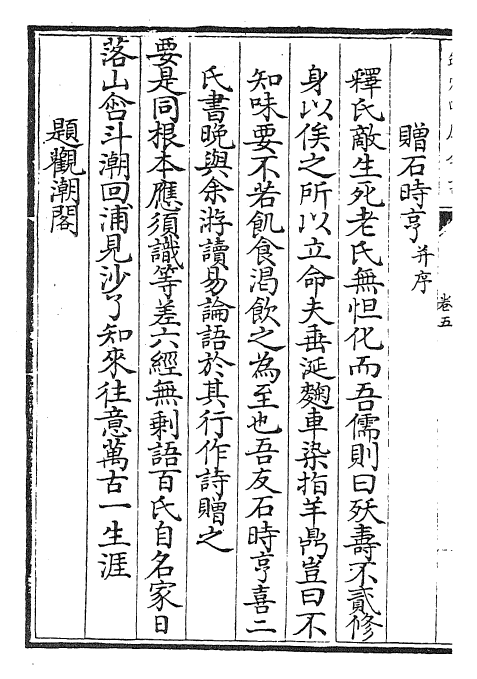 卷五
贈石時亨并序
釋氏敵生死老氏無怛化而吾儒則曰殀壽不貳修
身以俟之所以立命夫垂涎麴車染指羊鼎豈曰不
知味要不若飢食渴飲之為至也吾友石時亨喜二
氏書晚與余游讀易論語於其行作詩贈之
要是同根本應須識等差六經無剩語百氏自名家日
落山銜斗潮回浦見沙了知來往意萬古一生涯
題觀潮閣